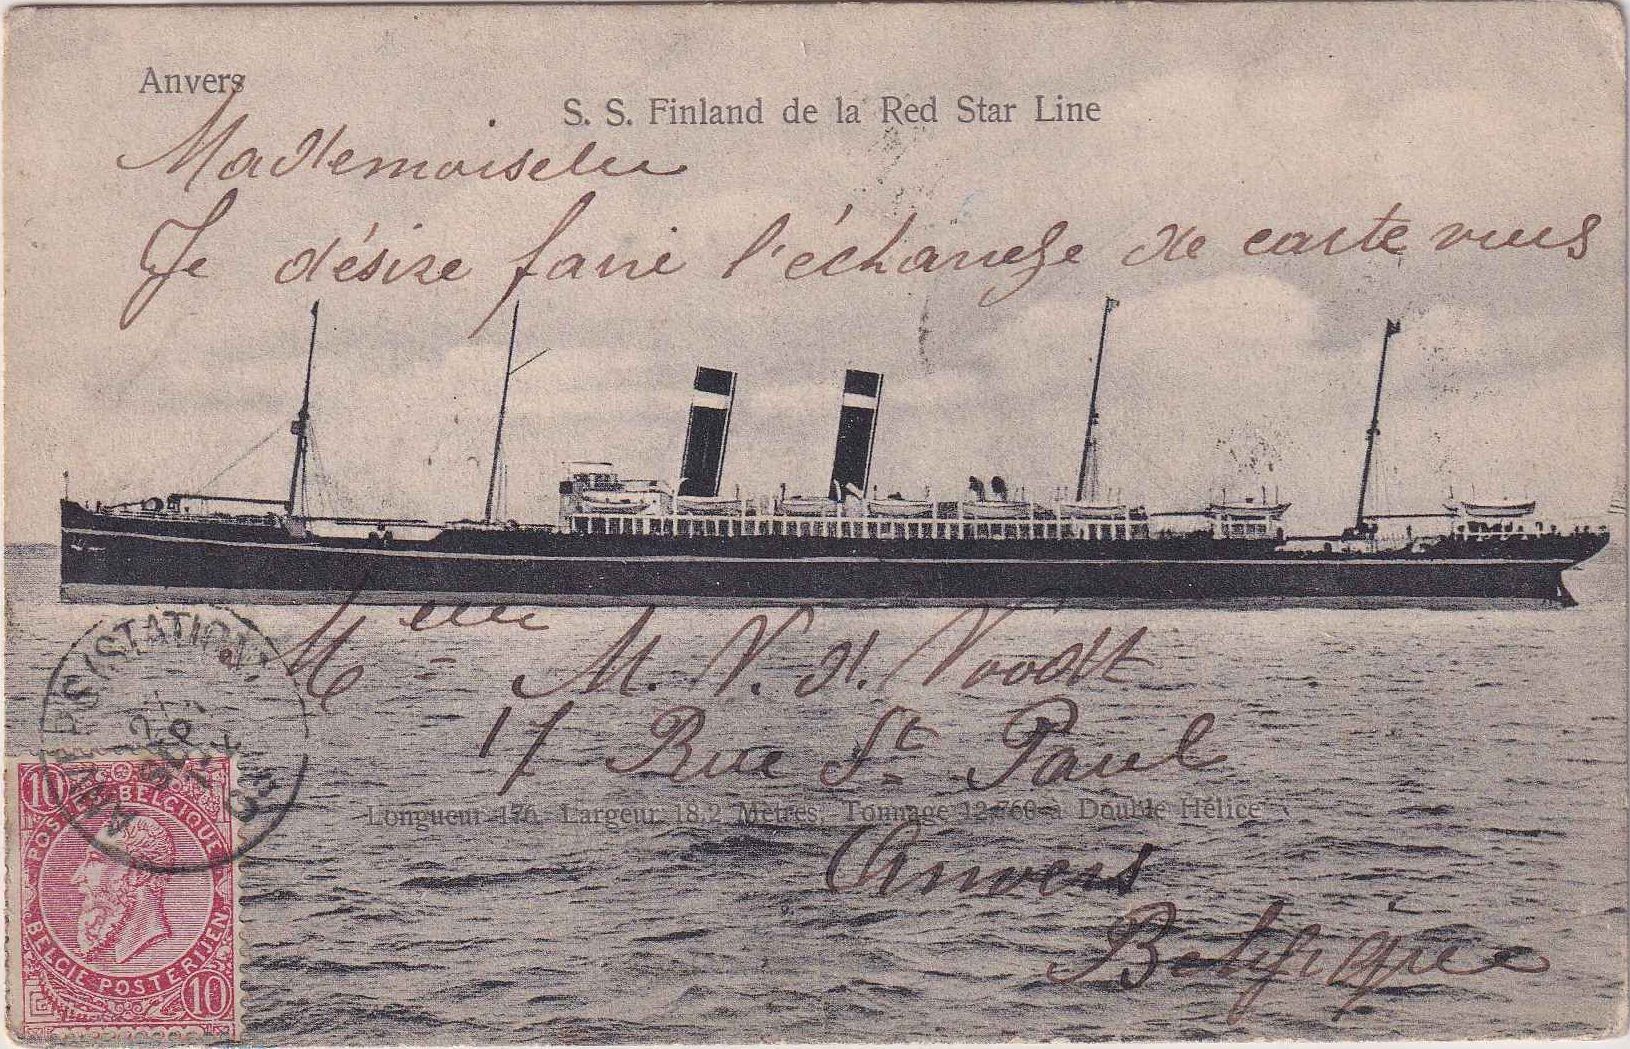 Anvers
S. S. Finland de la Red Star Line
Mademoiselle
Je désire faire l'échange de carte vues
Melle M. V. d. Voodt
17 Rue St Paul
Longueur 176. Largeur 18,2 Mètres, Tonnage 12,760 à Double Hélice
Anvers
Belgique
ANVERS (STATION)
10 10
POSTES BELGIQUE
BELGIE POSTERIJEN